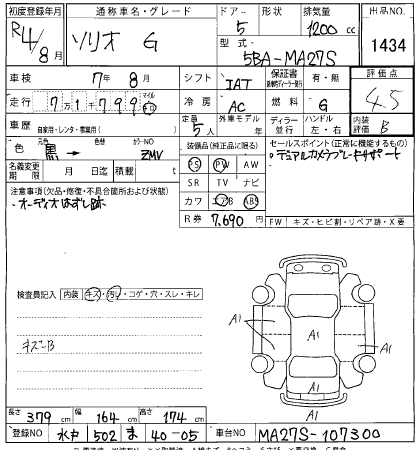 初度登録年月 通称車名・グレード ドアー 形状 排気量 出品NO.
R4/8月 ソリオ G 5 1200cc 1434
型式 5BA-MA27S
車検 7年 8月 シフト IAT 保証書 有・無 評価点
走行 71799 マイル km 冷房 AC 燃料 G 4.5
車歴 自家用・レンタ・事業用( ) 定員 5人 外車モデル 年 ディーラー 並行 ハンドル 左・右 内装評価 B
色 黒→ 色替 カラーNO ZMV 装備品(純正品に限る) セールスポイント(正常に機能するもの)
PS PW AW デュアルカメラブレーキサポート
名義変更期限 月 日迄 積載 t SR TV ナビ
注意事項(欠品・修復・不具合箇所および状態) カワ エアB ABS
オーディオはずし跡 R券 7,690円 FW キズ・ヒビ割・リペア跡・X要
検査員記入 内装 キズ・汚レ・コゲ・穴・スレ・キレ
キズ=B
A1 A1 A1 A1 A1
長さ 379cm 幅 164cm 高さ 174cm
登録NO 水戸 502 ま 40-05 車台NO MA27S-107300